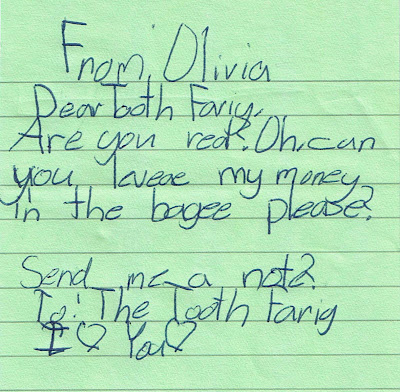 From, Olivia
Dear Tooth Fariy,
Are you real? Oh, can
you laveae my money
in the bagee please?
Send me a note?
To: The Tooth Fariy
I ♡ You ♡